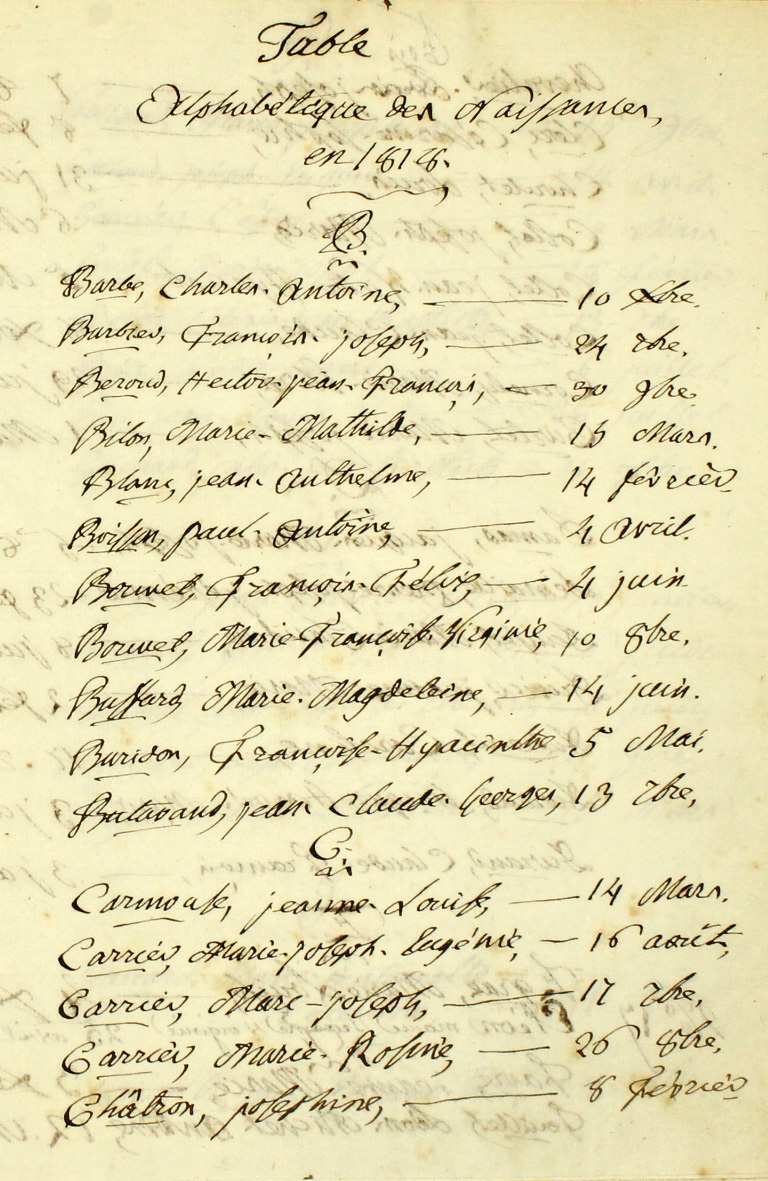 Table
Alphabétique des Naissances,
en 1818.
B.
Barbe, Charles-Antoine, 10 Xbre.
Barbier, François-joseph, 24 7bre.
Beroud, Hector-jean-François, 30 9bre.
Bilon, Marie-Mathilde, 15 Mars.
Blanc, jean-Anthelme, 14 février.
Boisson, paul-Antoine, 4 Avril.
Bouvet, François-Félix, 4 juin
Bouvet, Marie-Françoise-Virginie, 10 8bre.
Buffard, Marie-Magdeleine, 14 juin.
Buridon, Françoise-Hyacinthe 5 Mai.
Butavand, jean-Claude-Georges, 13 7bre.
C.
Carmouse, jeanne-Louise, 14 Mars.
Carrier, Marie-joseph-Eugénie, 16 août,
Carrier, Marc-joseph, 17 7bre.
Carrier, Marie-Rosine, 26 8bre.
Châtron, josephine, 8 Février